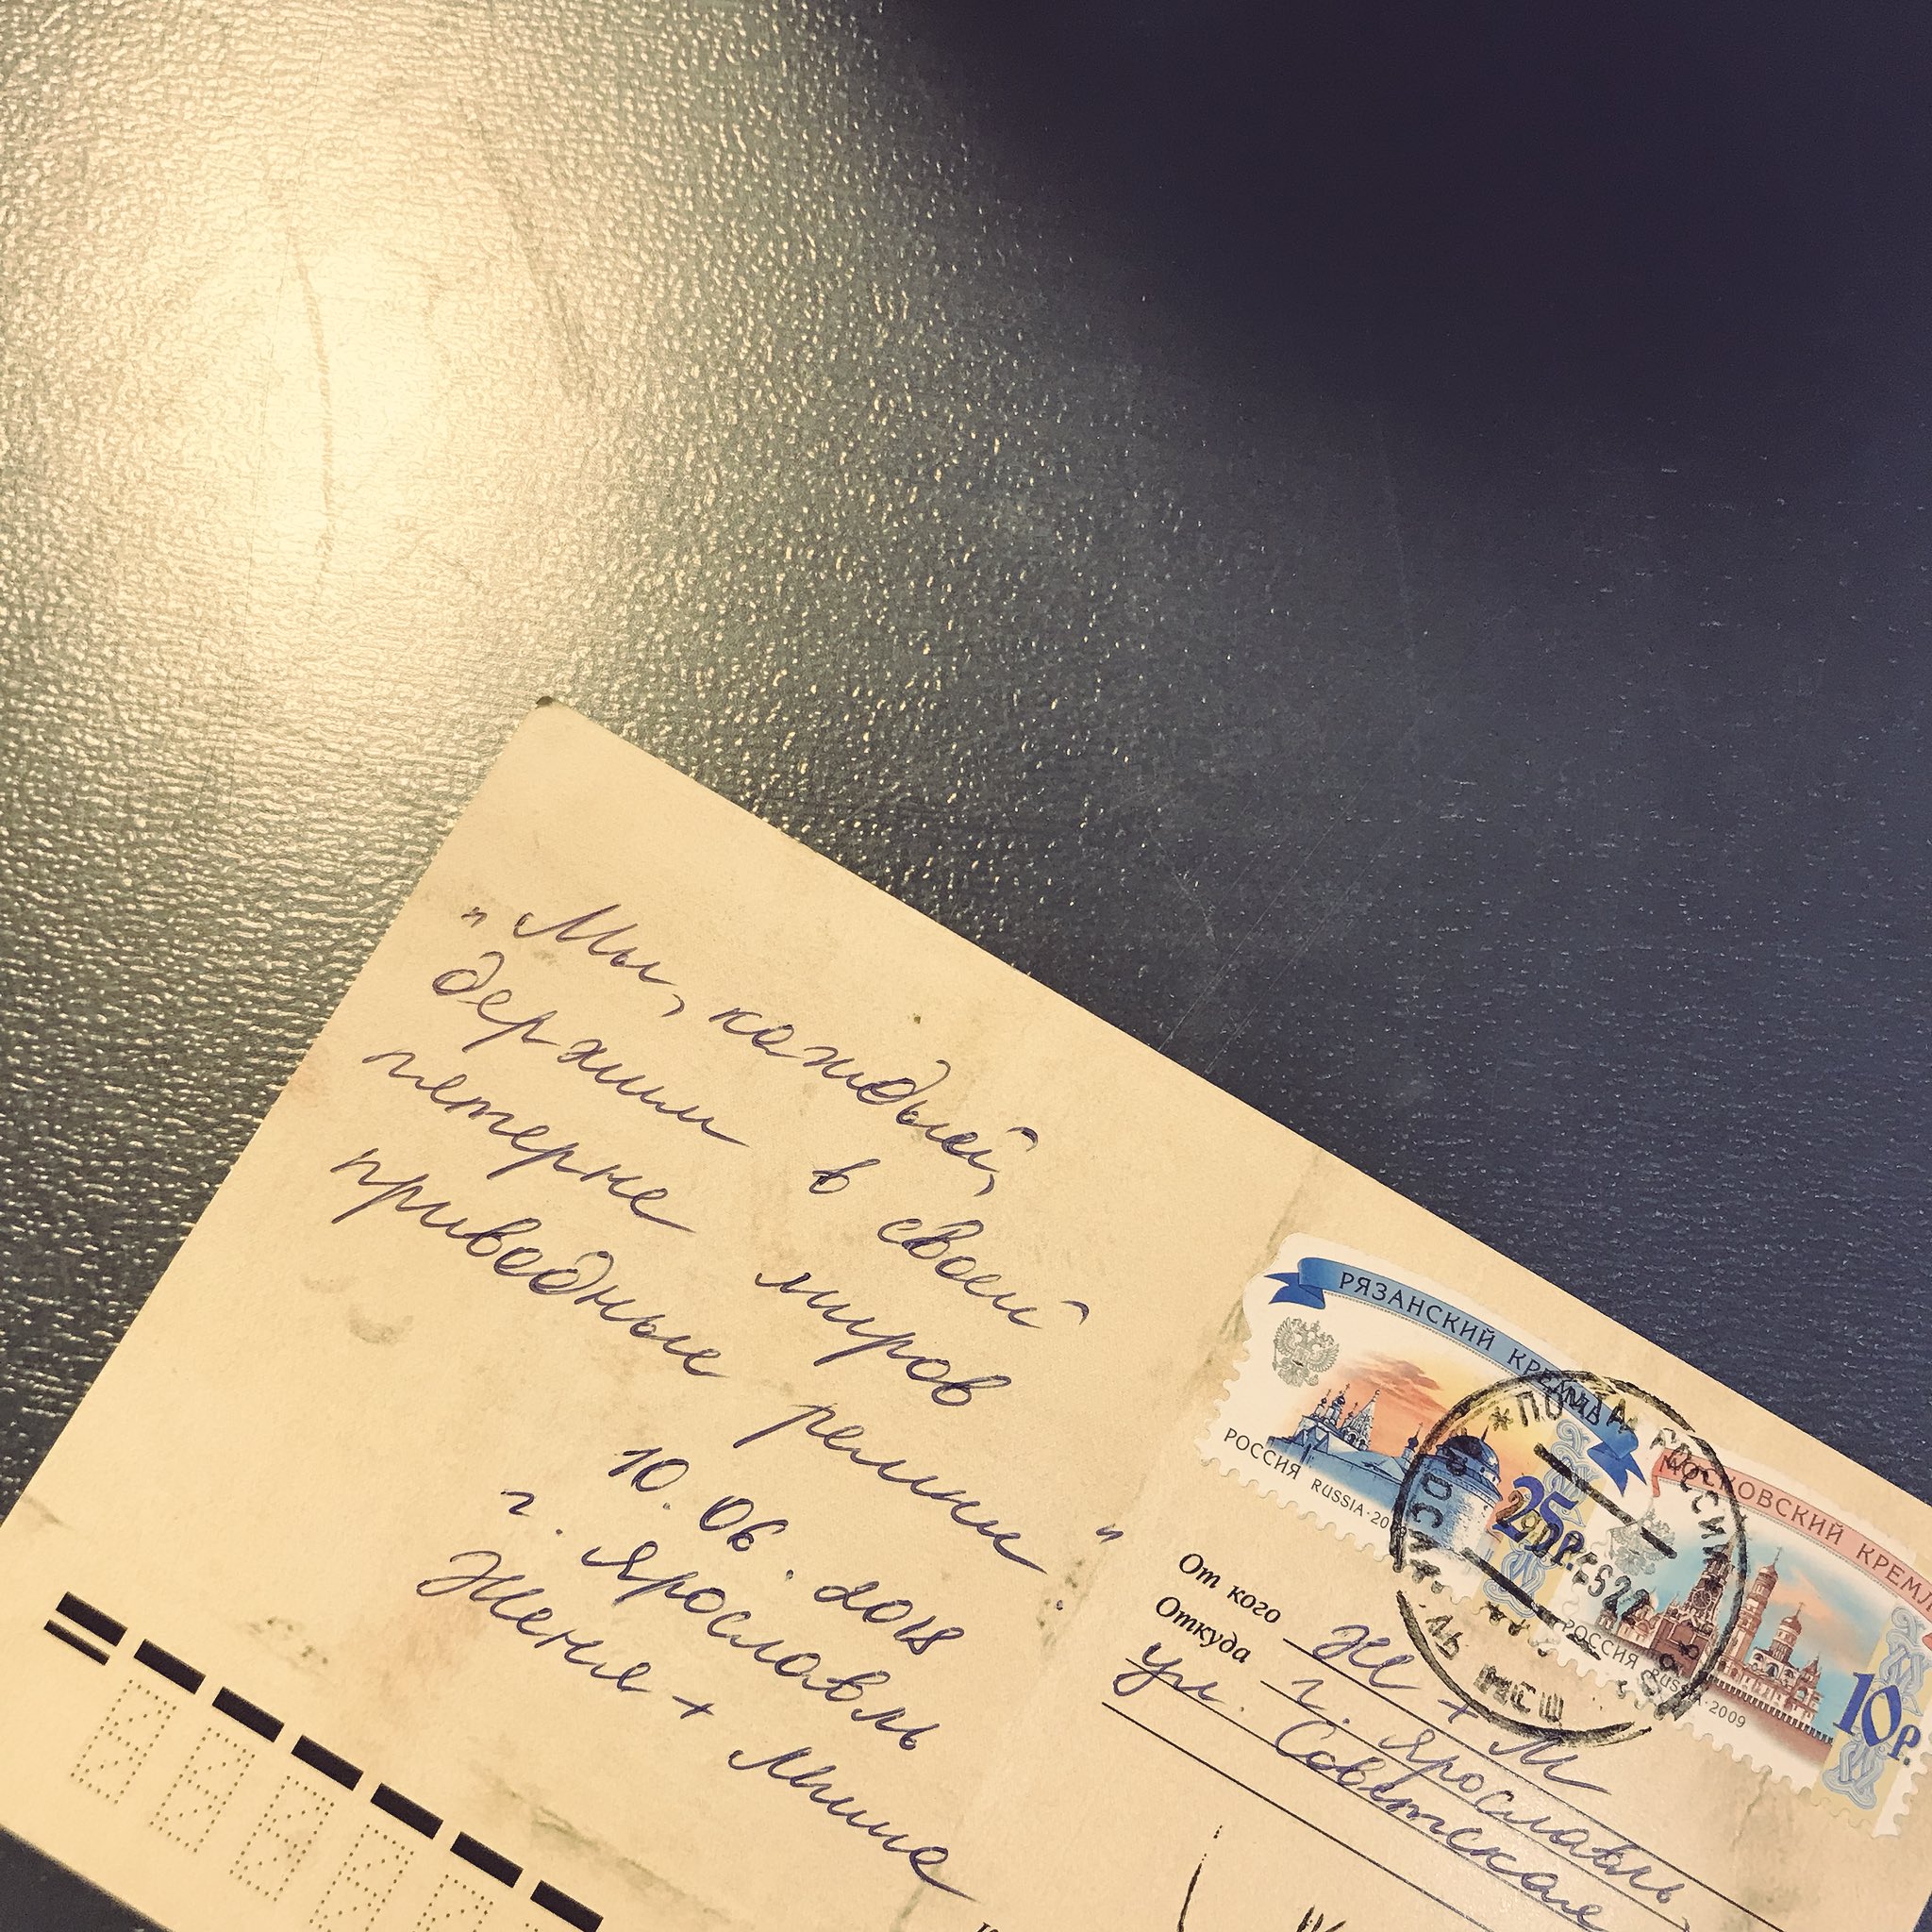 „Мы, каждый,
держим в своей
пятерне миров
приводные ремни."
10.06.2018
г. Ярославль
Женя + Миша
РЯЗАНСКИЙ КРЕМЛЬ
РОССИЯ RUSSIA·20
25Р.
МОСКОВСКИЙ КРЕМЛ
РОССИЯ RUSSIA·2009
10Р.
ПОЧТА РОССИИ
МСЦ
От кого Ж + М
Откуда г. Ярославль,
ул. Советская